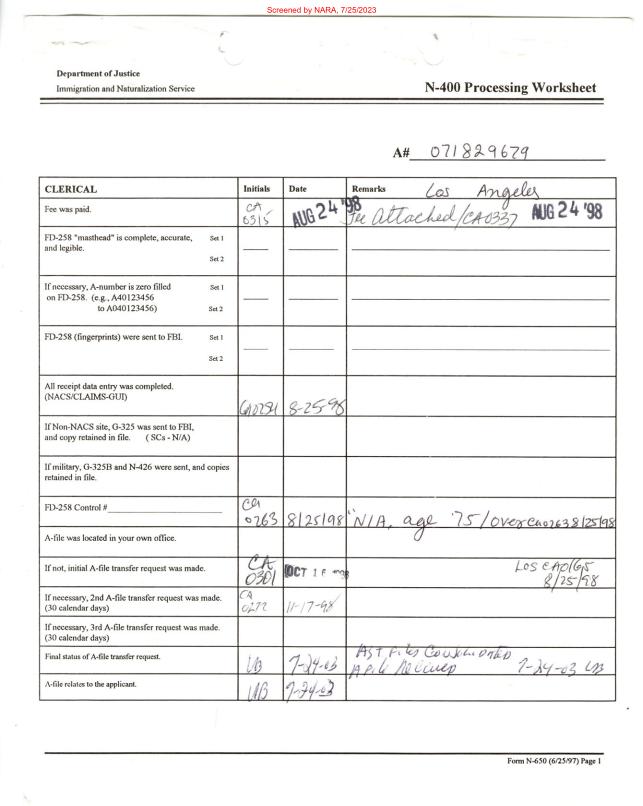 Screened by NARA, 7/25/2023
Department of Justice
Immigration and Naturalization Service
N-400 Processing Worksheet
A# 071829679
CLERICAL Initials Date Remarks Los Angeles
Fee was paid. CA 0315 AUG 24 '98 See Attached/CA0337 AUG 24 '98
FD-258 "masthead" is complete, accurate, Set 1
and legible.
Set 2
If necessary, A-number is zero filled Set 1
on FD-258. (e.g., A40123456
to A040123456) Set 2
FD-258 (fingerprints) were sent to FBI. Set 1
Set 2
All receipt data entry was completed.
(NACS/CLAIMS-GUI) 8-25-98
If Non-NACS site, G-325 was sent to FBI,
and copy retained in file. ( SCs - N/A)
If military, G-325B and N-426 were sent, and copies
retained in file.
FD-258 Control # CA 0263 8/25/98 "N/A, age 75/over CA0263 8/25/98
A-file was located in your own office.
If not, initial A-file transfer request was made. CA 0301 OCT 16 8/25/98
If necessary, 2nd A-file transfer request was made. CA 0272 11-17-98
(30 calendar days)
If necessary, 3rd A-file transfer request was made.
(30 calendar days)
Final status of A-file transfer request. 7-24-03 Files Consolidated
A file Received 7-24-03
A-file relates to the applicant. 7-24-03
Form N-650 (6/25/97) Page 1